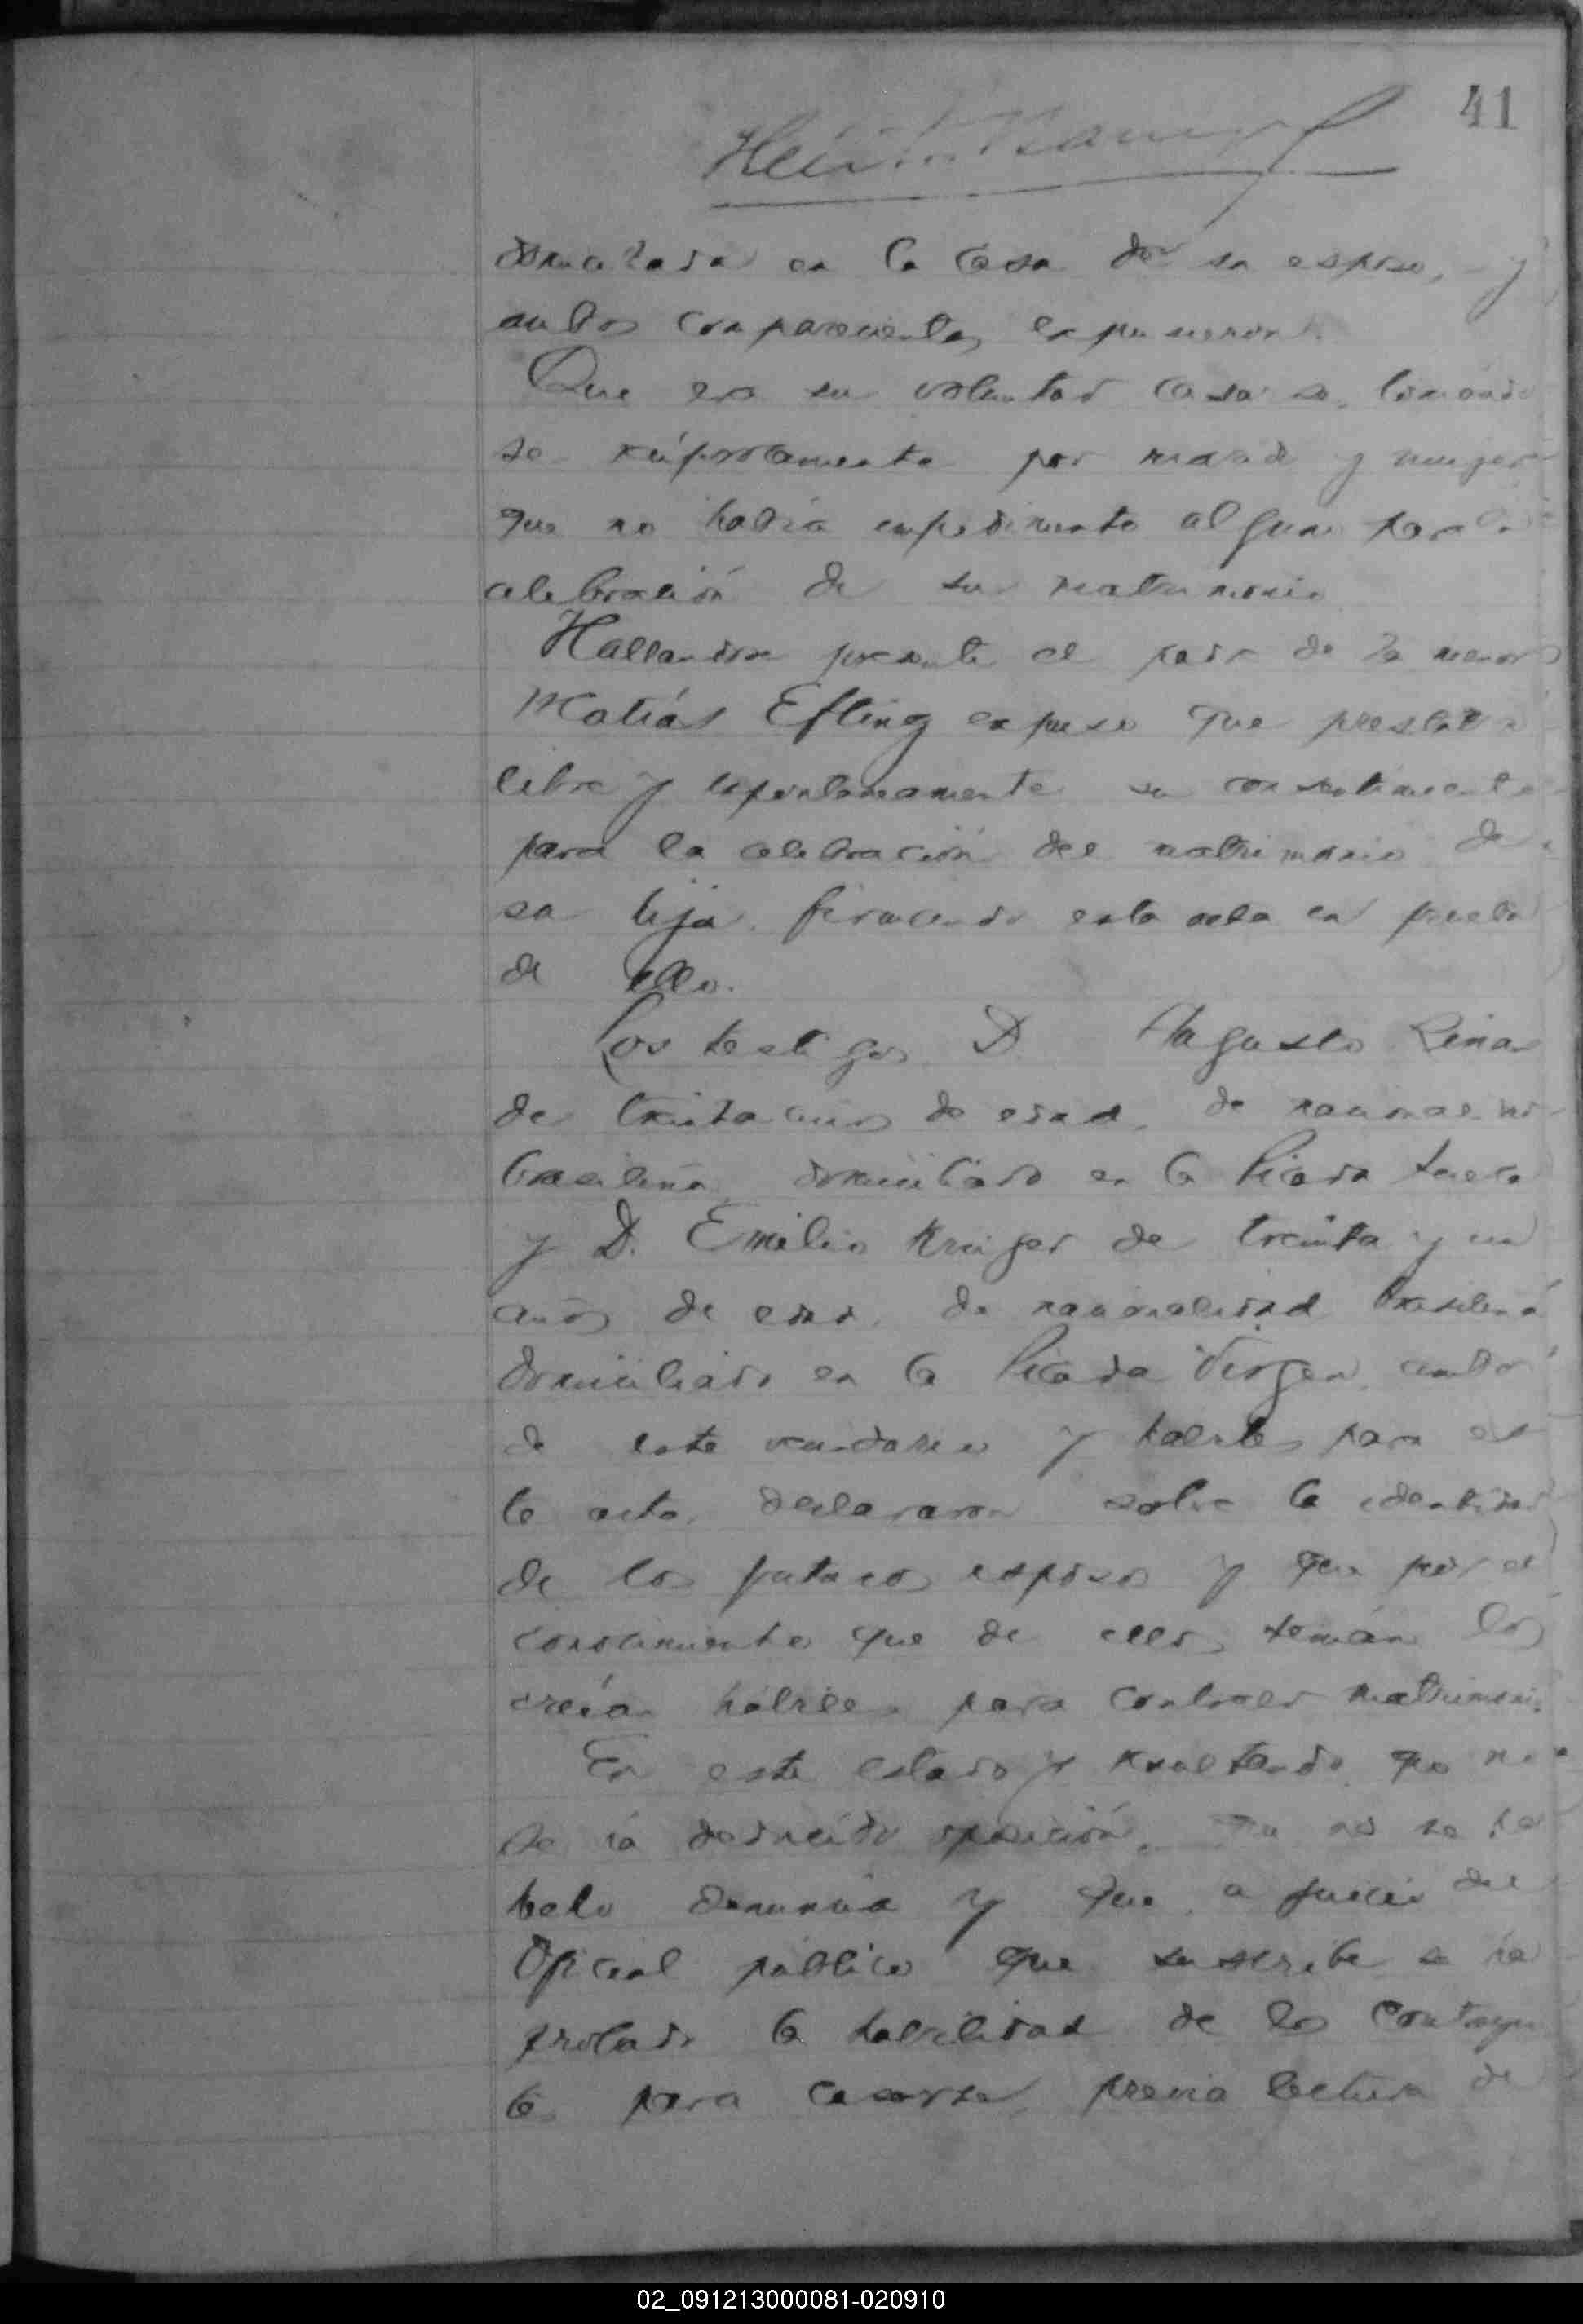 41
domiciliada en la casa de su esposo, y
ambos comparecientes expusieron:
Que era su voluntad casarse, tomando
se recíprocamente por marido y mujer
que no había impedimento alguno para la
celebración de su matrimonio
Hallandose presente el padre de la menor
Matías Efling expuso que prestaba
libre y espontaneamente su consentimiento
para la celebración del matrimonio de
su hija, firmando esta acta en prueba
de ello.
Los testigos D. Augusto
de treinta años de edad, de nacionalidad
brasileña, domiciliado en la Picada
y D. Emilio Kruger de treinta y un
años de edad, de nacionalidad brasileña
domiciliado en la Picada Virgen, ambos
de este vecindario y habiles para es
te acto, declararon sobre la identidad
de los futuros esposos y que por el
conocimiento que de ellos tenían los
creían hábiles para contraer matrimonio.
En este estado y resultando que no
se ha deducido oposición, que no se ha
hecho denuncia y que, a juicio del
Oficial público que suscribe se ha
probado la habilidad de los contrayen
tes para casarse, previa lectura de
02_091213000081-020910